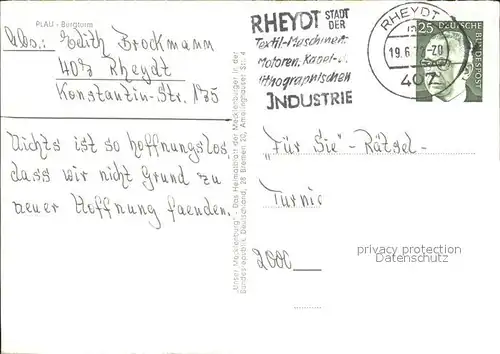 PLAU - Burgturm
Abs.: Edith Brockmann
407 Rheydt
Konstantin-Str. 135
Nichts ist so hoffnungslos,
dass wir nicht Grund zu
neuer Hoffnung faenden.
"Unser Mecklenburg" - Das Heimatblatt der Mecklenburger in der
Bundesrepublik Deutschland, 28 Bremen 20, Amelinghauser Str. 4
RHEYDT STADT
DER
Textil-Maschinen-
Motoren, Kabel-u.
lithographischen
INDUSTRIE
RHEYDT
19.6.72-20
407
25 DEUTSCHE
BUNDESPOST
"Für Sie"-Rätsel-
Turnier
2000
privacy protection
Datenschutz